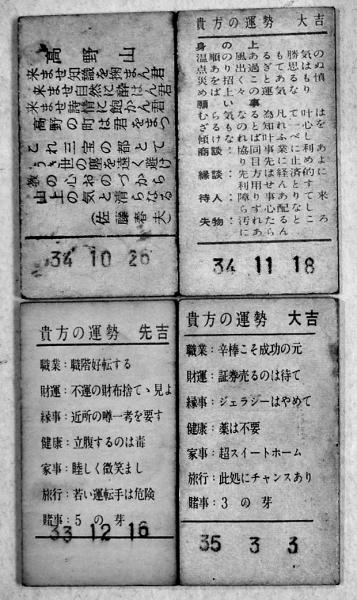 高野山
来ませ知識を掬まん君
来ませ自然に酔はん君
来ませ詩情に飽かん君
高野の町は君をまつ
これ三宝の都とて
うき世の塵を遠く避け
教の心おのづから
山上の気と清らなる
(佐藤春夫)
34 10 26
貴方の運勢 大吉
身の上
温順の風あるも勝気の
点あり出過ぎて思はぬ
災を招くことあるも慎
めば上々の運気なり
願い事
むら気なる為凡て叶は
ざるものと知れ一心を
傾けなれば叶ふべし
商談:協同事業に利あ
り目先に止めよ
縁談:先方は経済的に
利用せんとす
待人:障り事ありて来
らず心配なし
失物:汚れたるところ
にあらん
34 11 18
貴方の運勢 先吉
職業:職階好転する
財運:不運の財布捨てゝ見よ
縁事:近所の噂一考を要す
健康:立腹するのは毒
家事:睦しく微笑まし
旅行:若い運転手は危険
賭事:5 の芽
33 12 16
貴方の運勢 大吉
職業:辛棒こそ成功の元
財運:証券売るのは待て
縁事:ジェラジーはやめて
健康:薬は不要
家事:超スイートホーム
旅行:此処にチャンスあり
賭事:3 の芽
35 3 3